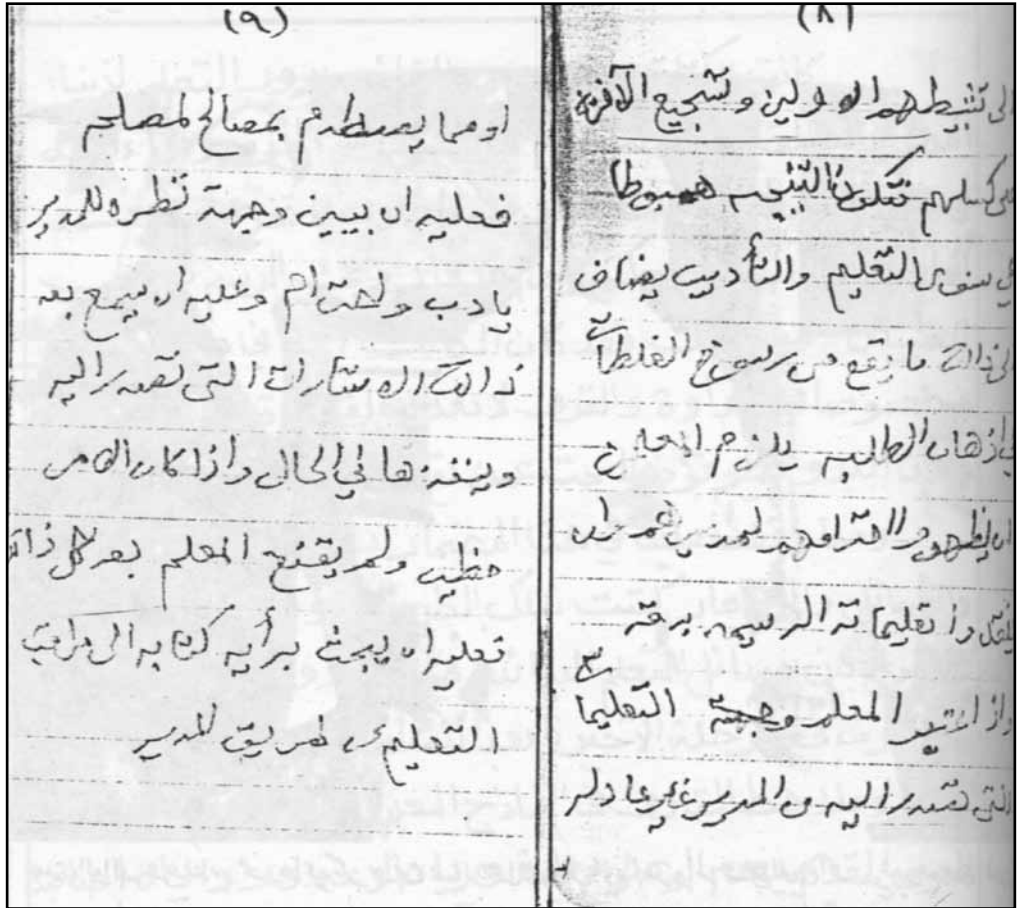 (٨)
الى تثبيط همم الاولين وتشجيع الآخرين
على كسلهم فتكون النتيجه هبوطا
في مستوى التعليم والتأديب يضاف
الى ذالك ما يقع من رسوخ الغلطات
في اذهان الطلبه يلزم المعلمين
ان يظهروا احترامهم لمديرهم وان
ينفذوا تعليماته الرسميه برقة
واذا اعتبر المعلم وجهة التعليمات
التي تصدر اليه من المدير غير عادله
(٩)
او مما يصطدم بمصالح لمصلحه
فعليه ان يبين وجهة نظره للمدير
بادب واحترام وعليه ان يتبع بعد
ذالك الاستشارات التي تصدر اليه
وينفذها في الحال واذا كان الامر
خطير ولم يقتنع المعلم بعد كل ذالك
فعليه ان يبعث برأيه كتابه الى مراقب
التعليم عن طريق المدير